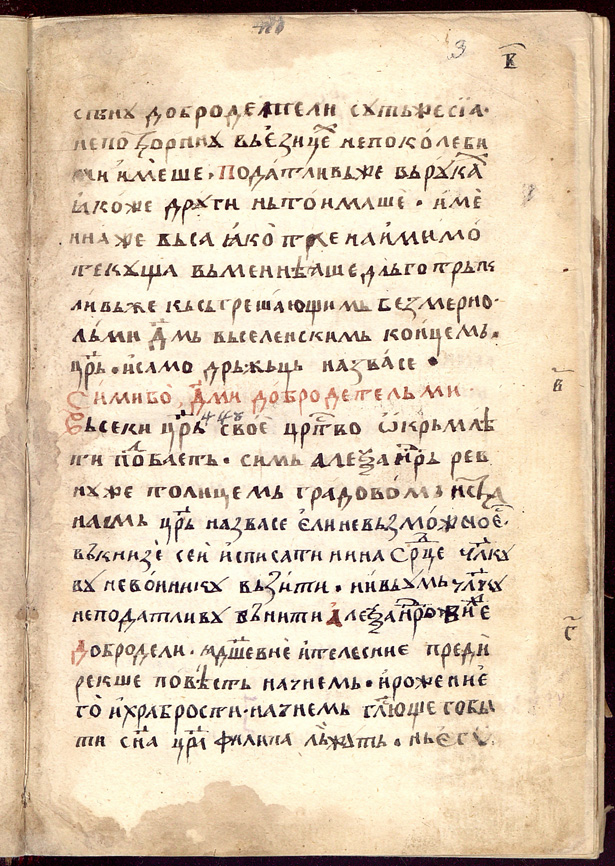 3 к҃
ствих добродетели сутьжесїа·
непоборних вьезице непоколеби
ми имеше. Податливьже врука
ꙗкоже други нь то имаше · име
ннаже вьса ꙗко
текуща вьменꙗше дльготрьпе
ливьже кьсьгрешающимь безмерно·
льми д҃мь вьселенскимь концемь.
цр҃ь · исамо дрьжьць назвасе ·
Симибо д҃ми добродетельми
вьсеки цр҃ь 448 свое цр҃тво ѡкрьмлѣ
ти побаеть · симь алеѯандрь рев
нуже толицемь градовомь
намь цр҃ь назвасе елиневьзможное·
вькнизе сеи исписати нина ср҃це чл҃ку
ву невоиннику вьзити · нивьумь чл҃чу
неподатливу вьнити Алеѯандрово
добродели · душевние ителесние преди
рекше повѣсть начнемь · ирожение
го ихрабрости · начнемь гл҃юще тобы
ти сн҃а цр҃ꙗ филипа лѣжать · нь
в҃
г҃